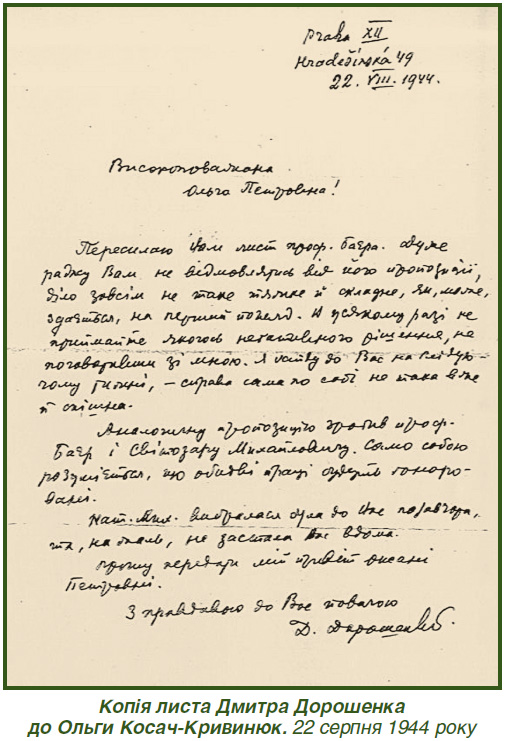 Praha XII
Hradešínská 49
22. VIII. 1944.
Високоповажана
Ольго Петрівна!
Пересилаю Вам лист проф. Баєра. Дуже
раджу Вам не відмовлятись від його пропозиції,
діло зовсім не таке тяжке й складне, як, може,
здається, на перший погляд. В усякому разі не
приймайте якогось негативного рішення, не
поговоривши зі мною. Я приїду до Вас на слідую-
чому тижні, – справа сама по собі не така вже
й спішна.
Аналогичну пропозицію зробив проф.
Баєр і Світозару Михайловичу. Само собою
розуміється, що обидві праці будуть гоноро-
вані.
Нат. Мих. вибралася була до Вас позавчора,
та, на жаль, не застала Вас вдома.
Прошу передати мій привіт Оксані
Петрівні.
З правдивою до Вас повагою
Д. Дорошенко.
Копія листа Дмитра Дорошенка
до Ольги Косач-Кривинюк. 22 серпня 1944 року